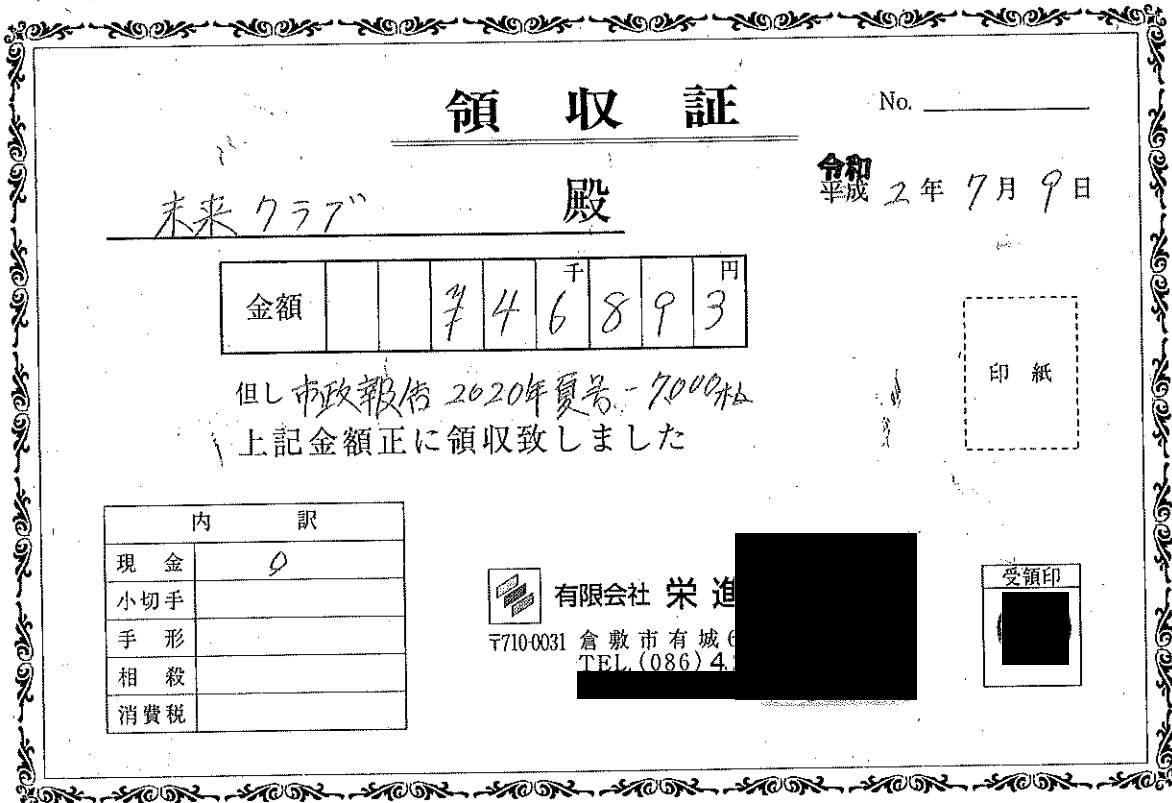 領収証
No.
令和
平成 2年 7月 9日
未来クラブ 殿
金額 ¥46千893円
但し 市政報告 2020年夏号-7000枚
上記金額正に領収致しました
印紙
内訳
現金
小切手
手形
相殺
消費税
有限会社 栄進
〒710-0031 倉敷市有城6
TEL.(086)4
受領印